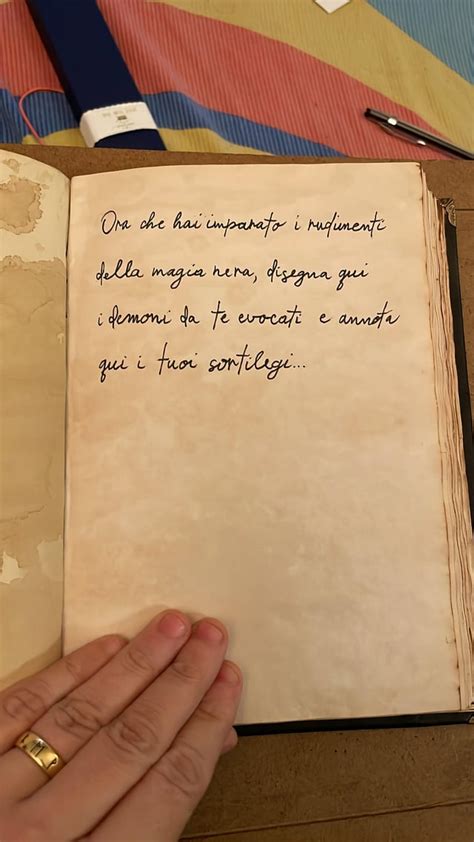 Ora che hai imparato i rudimenti
della magia nera, disegna qui
i demoni da te evocati e annota
qui i tuoi sortilegi...